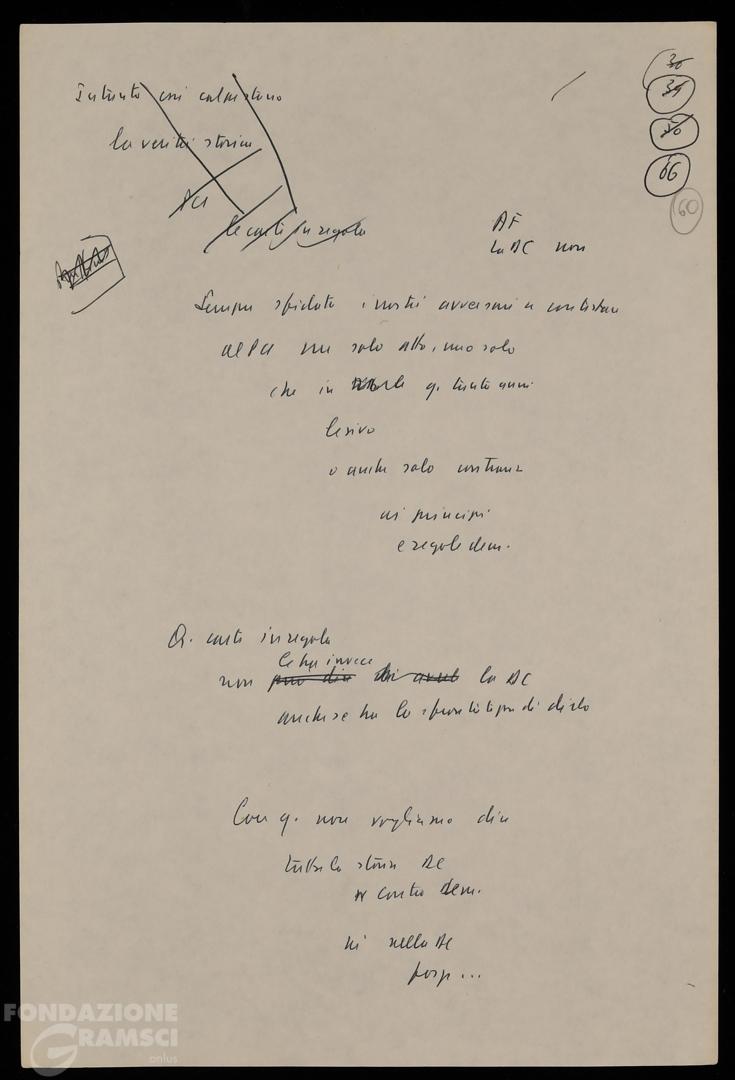 36
34
50
66
60
Intanto così calpestano
la verità storica
PCI
le carte in regola
AF
La DC non
Sempre sfidato i nostri avversari a contestare
al PCI un solo atto, uno solo
che in q. trent'anni
lesivo
o anche solo
ai principi
e regole dem.
Q. carte in regola
le ha invece
non può dire la DC
anche se ha la spudoratezza di dirlo
Con q. non vogliamo dire
tutta la storia DC
contro dem.
né nella DC
forze...
FONDAZIONE
GRAMSCI
onlus